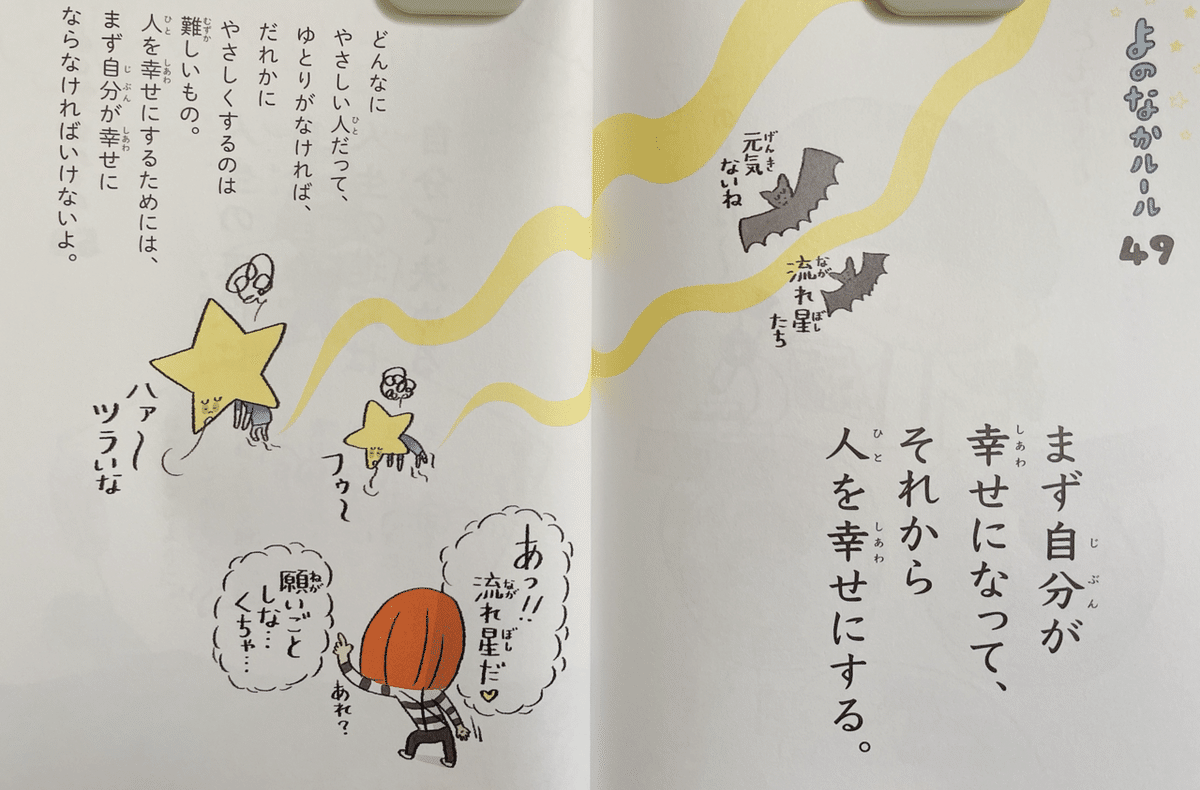 よのなかルール
49
まず自分が
幸せになって、
それから
人を幸せにする。
元気
ないね
流れ星
たち
どんなに
やさしい人だって、
ゆとりがなければ、
だれかに
やさしくするのは
難しいもの。
人を幸せにするためには、
まず自分が幸せに
ならなければいけないよ。
ハァ〜
ツラいな
フゥ〜
あっ!!
流れ星だ♡
願いごと
しな…
くちゃ…
あれ?